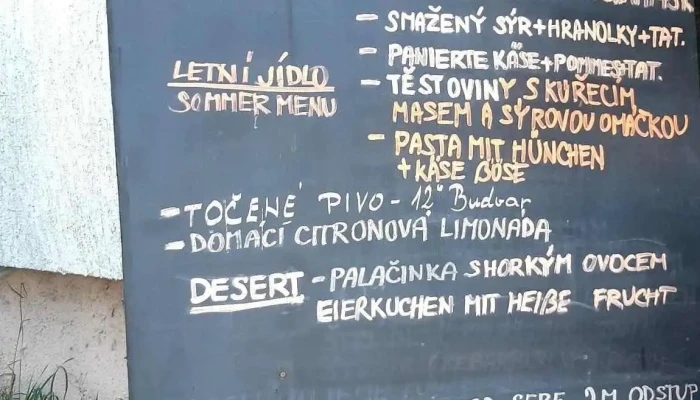 - SMAŽENÝ SÝR+HRANOLKY+TAT.
- PANIERTE KÄSE+POMMES+TAT.
LETNÍ JÍDLO
SOMMER MENU
- TĚSTOVINY S KUŘECÍM
MASEM A SÝROVOU OMÁČKOU
- PASTA MIT HÜNCHEN
+ KÄSE BÖSE
- TOČENÉ PIVO - 12° Budvar
- DOMÁCÍ CITRONOVÁ LIMONÁDA
DESERT - PALAČINKA SHORKÝM OVOCEM
EIERKUCHEN MIT HEIßE FRUCHT
SEBE 2M ODSTUP